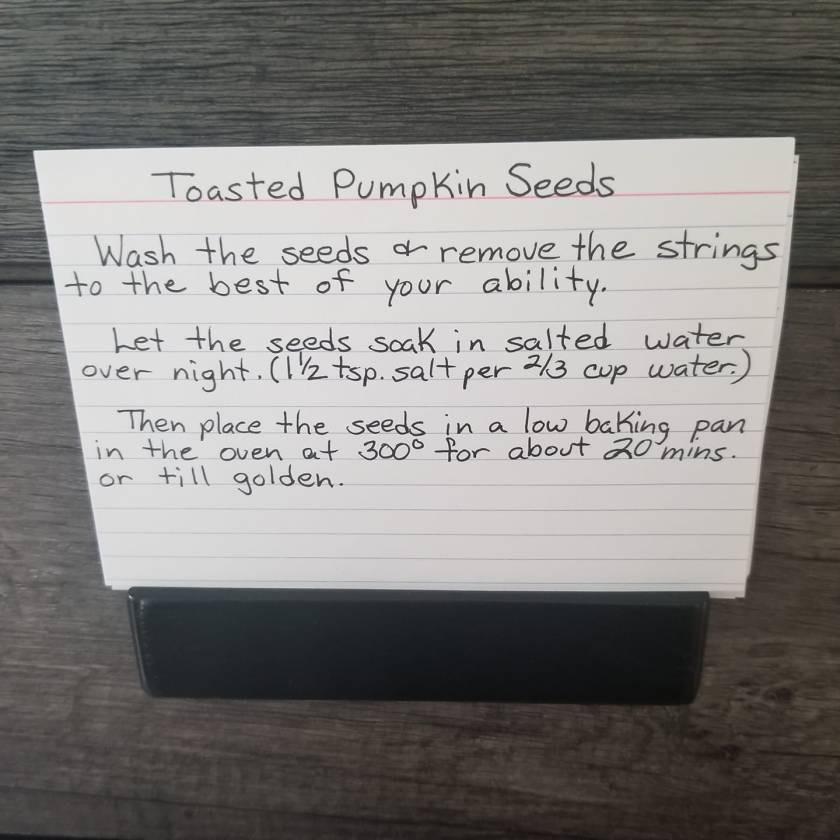 Toasted Pumpkin Seeds
Wash the seeds & remove the strings
to the best of your ability.
Let the seeds soak in salted water
over night. (1 1/2 tsp. salt per 2/3 cup water.)
Then place the seeds in a low baking pan
in the oven at 300° for about 20 mins.
or till golden.